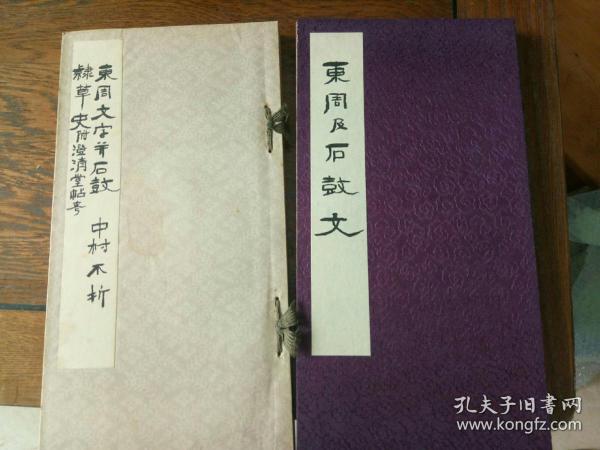 東周文字並石鼓
隸草史附澄清堂帖考
中村不折
東周及石鼓文
孔夫子旧书网
www.kongfz.com